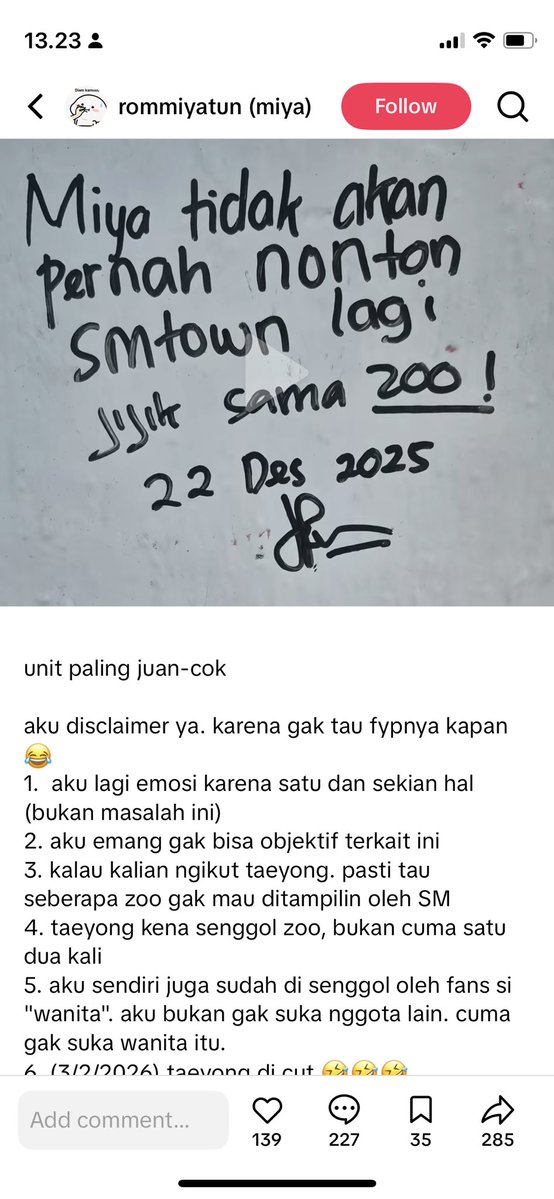 13.23
Diam kamuuu,
rommiyatun (miya)
Follow
Miya tidak akan
pernah nonton
SMtown lagi
Jijik sama 200 !
22 Des 2025
unit paling juan-cok
aku disclaimer ya. karena gak tau fypnya kapan
😂
1.  aku lagi emosi karena satu dan sekian hal
(bukan masalah ini)
2. aku emang gak bisa objektif terkait ini
3. kalau kalian ngikut taeyong. pasti tau
seberapa zoo gak mau ditampilin oleh SM
4. taeyong kena senggol zoo, bukan cuma satu
dua kali
5. aku sendiri juga sudah di senggol oleh fans si
"wanita". aku bukan gak suka nggota lain. cuma
gak suka wanita itu.
6. (3/2/2026) taeyong di cut 🤣🤣🤣
Add comment...
139
227
35
285